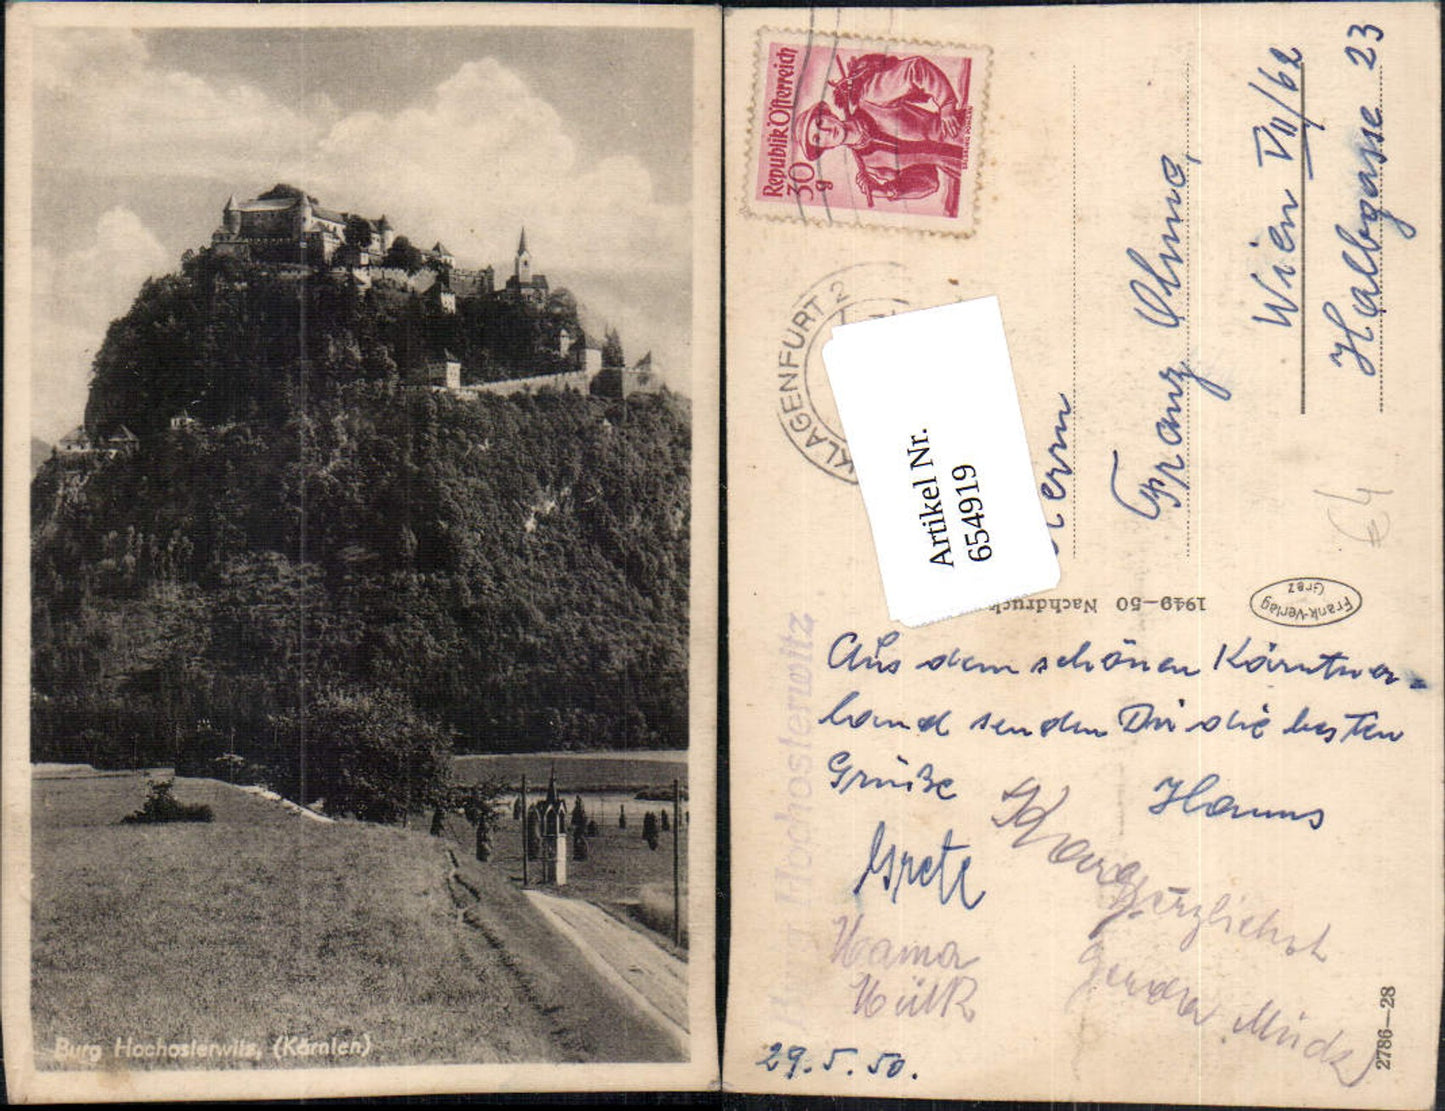 Burg Hochosterwitz, (Kärnten)
Republik Österreich
30
g
KLAGENFURT 2
Artikel Nr.
654919
Franz
Wien VII/62
Halbgasse 23
€4
1949—50 Nachdruck
Frank-Verlag
Graz
Burg Hochosterwitz
Aus dem schönen Kärntner-
land senden Dir die besten
Grüße
Hanns
Grete
Herzlichst
29.5.50.
2786—28